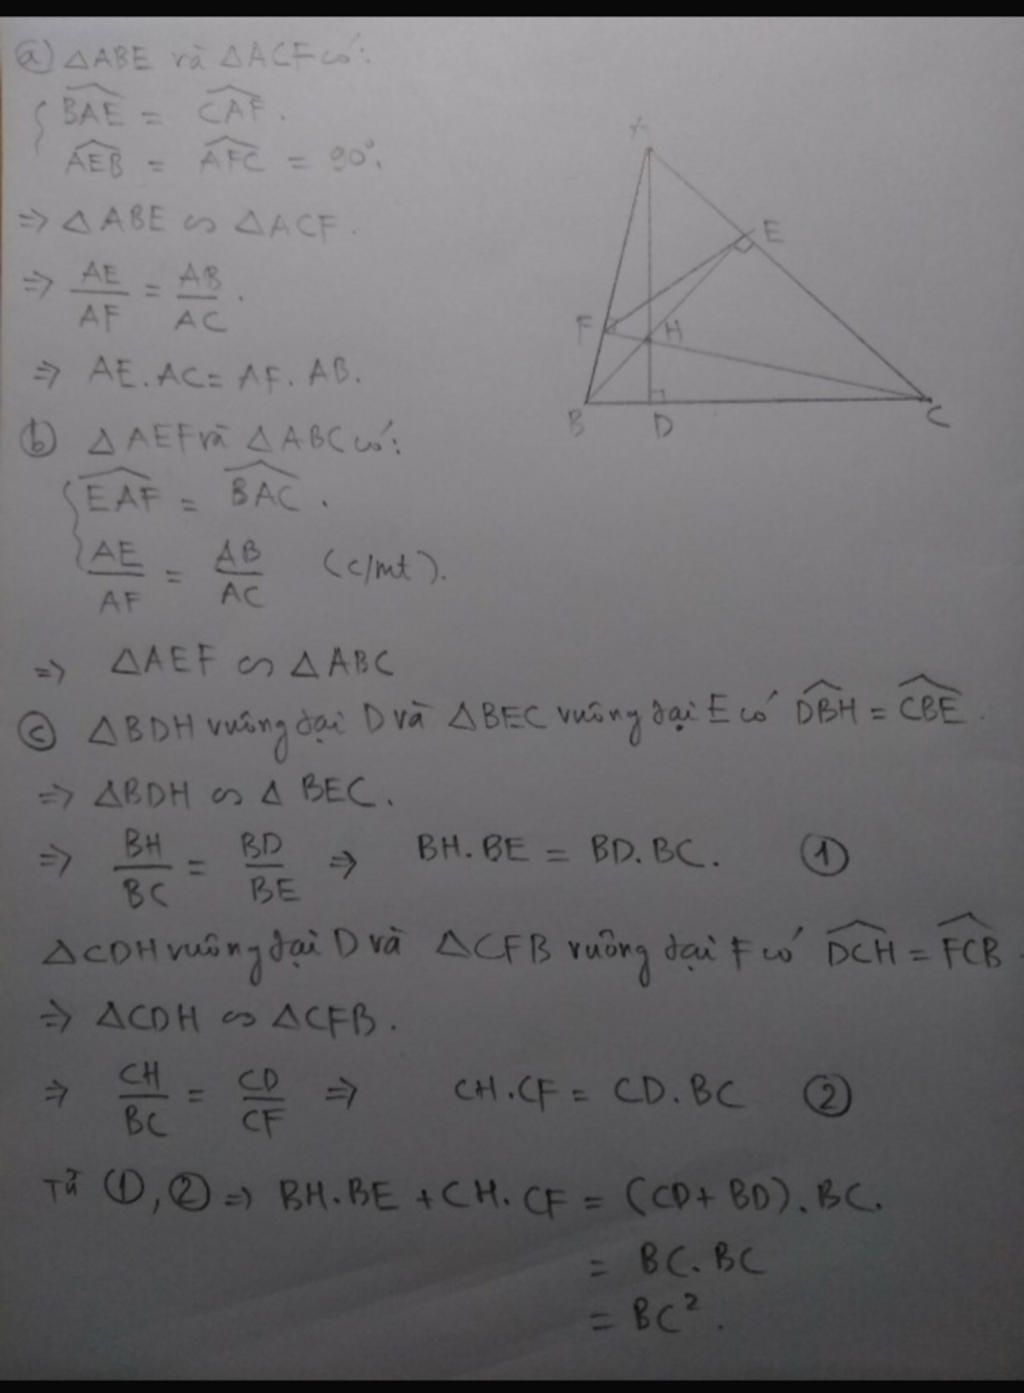 a) △ABE và △ACF có:
BAE^ = CAF^.
AEB^ = AFC^ = 90°.
=> △ABE ∽ △ACF.
=> AE/AF = AB/AC.
=> AE.AC = AF.AB.
A
E
F
H
B
D
C
b) △AEF và △ABC có:
EAF^ = BAC^.
AE/AF = AB/AC (c/mt).
=> △AEF ∽ △ABC
c) △BDH vuông tại D và △BEC vuông tại E có DBH^ = CBE^.
=> △BDH ∽ △BEC.
=> BH/BC = BD/BE => BH.BE = BD.BC. ①
△CDH vuông tại D và △CFB vuông tại F có DCH^ = FCB^.
=> △CDH ∽ △CFB.
=> CH/BC = CD/CF => CH.CF = CD.BC ②
Từ ①, ② => BH.BE + CH.CF = (CD + BD).BC.
= BC.BC
= BC².